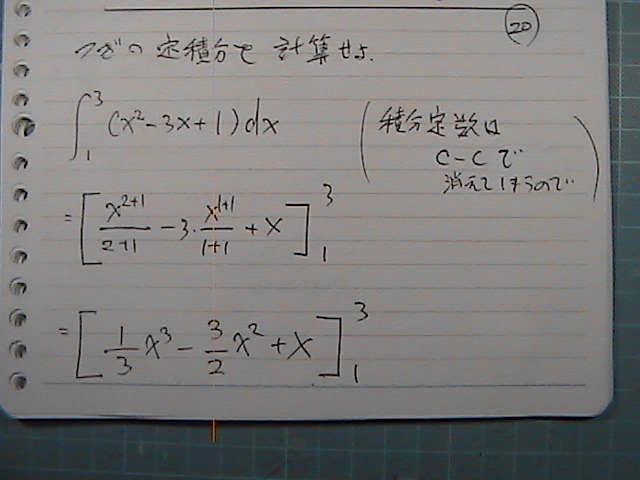 20
つぎの定積分を計算せよ.
∫₁³ (x²-3x+1)dx
(積分定数は
C-Cで
消えてしまうので)
= [x^{2+1}/(2+1) - 3・x^{1+1}/(1+1) + x]₁³
= [1/3 x³ - 3/2 x² + x]₁³